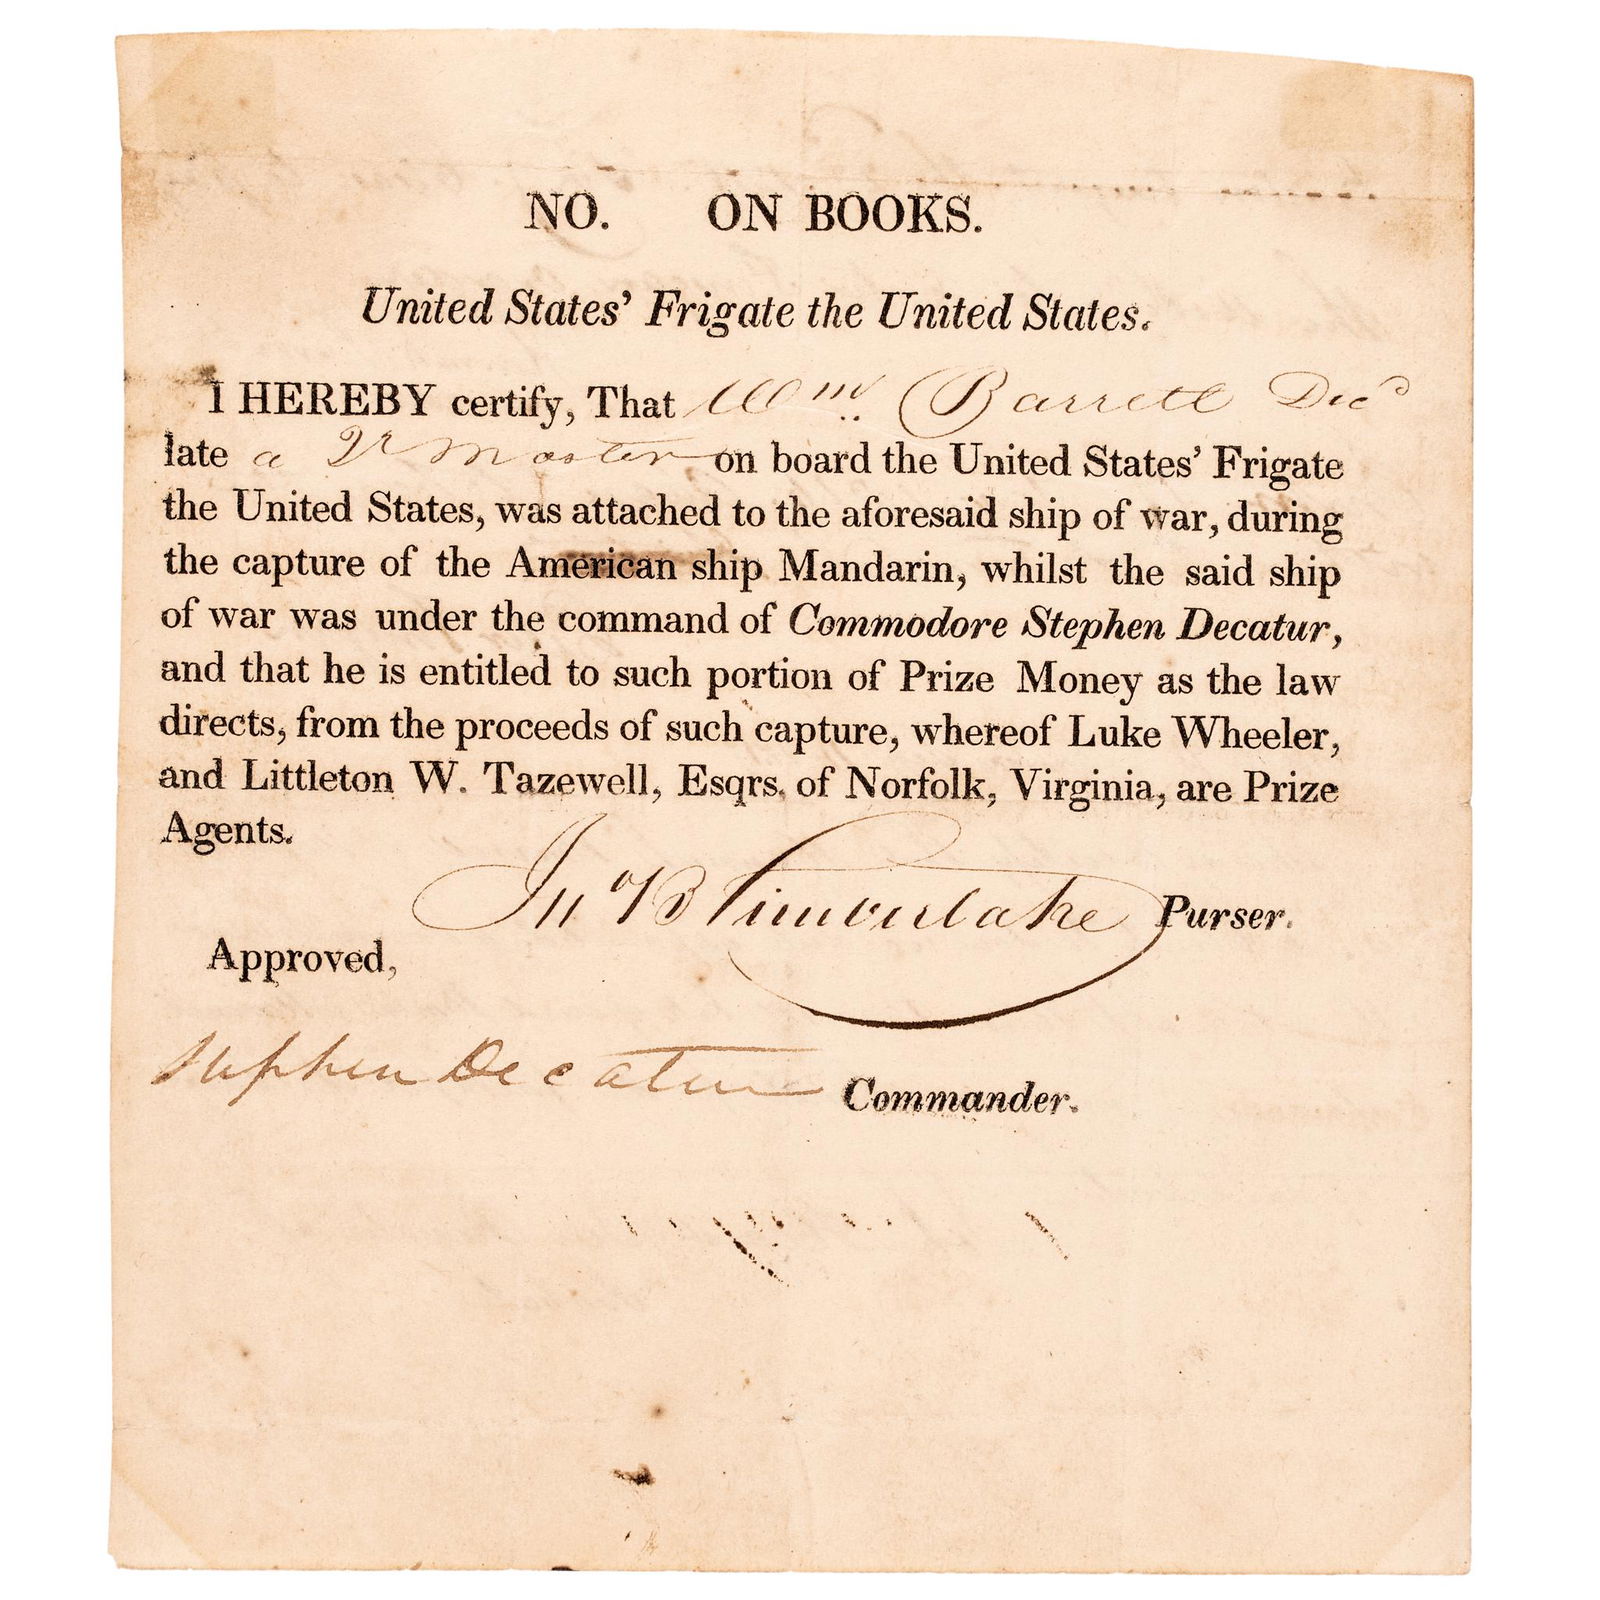 NO. ON BOOKS.
United States' Frigate the United States.
I HEREBY certify, That Wm. Barrett Decd
late a Qr Master on board the United States' Frigate
the United States, was attached to the aforesaid ship of war, during
the capture of the American ship Mandarin, whilst the said ship
of war was under the command of Commodore Stephen Decatur,
and that he is entitled to such portion of Prize Money as the law
directs, from the proceeds of such capture, whereof Luke Wheeler,
and Littleton W. Tazewell, Esqrs. of Norfolk, Virginia, are Prize
Agents.
Jno B Timberlake Purser.
Approved,
Stephen Decatur Commander.